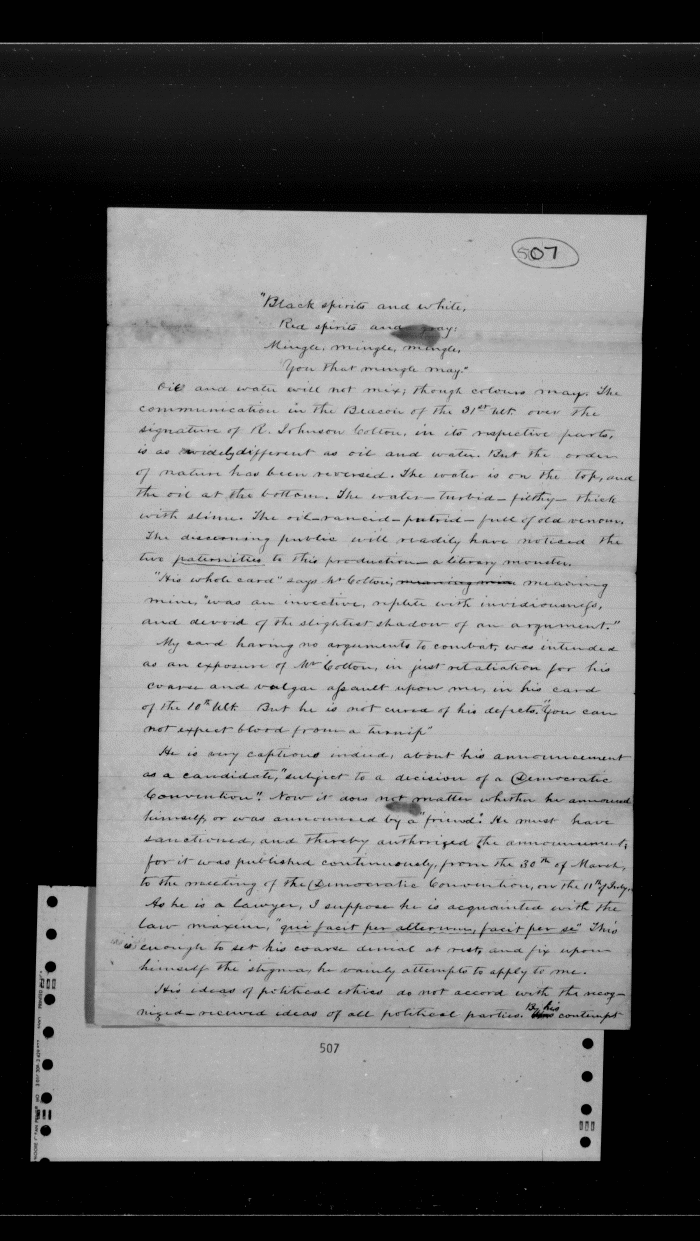 507
"Black spirits and white,
Red spirits and gray:
Mingle, mingle, mingle,
You that mingle may."
Oil and water will not mix; though colours may. The
communication in the Beacon of the 31st ult. over the
signature of R. Johnson Colton, in its respective parts,
is as widely different as oil and water. But the order
of nature has been reversed. The water is on the top, and
the oil at the bottom. The water—turbid—filthy—thick
with slime. The oil—rancid—putrid—full of old venom.
The discerning public will readily have noticed the
two paternities to this production—a literary monster.
"His whole card" says Mr Colton, meaning mine meaning
mine, "was an invective, replete with invidiousness,
and devoid of the slightest shadow of an argument."
My card having no arguments to combat, was intended
as an exposure of Mr Colton, in just retaliation for his
coarse and vulgar assault upon me, in his card
of the 10th ult. But he is not cured of his defects. "You can
not expect blood from a turnip"
He is very captious indeed, about his announcement
as a candidate, "subject to a decision of a Democratic
Convention". Now it does not matter whether he announced
himself, or was announced by a "friend". He must have
sanctioned, and thereby authorized the announcement;
for it was published continuously, from the 30th of March,
to the meeting of the Democratic Convention, on the 11th of July.
As he is a lawyer, I suppose he is acquainted with the
law maxim, "qui facit per alterum, facit per se" This
is enough to set his coarse denial at rest, and fix upon
himself the stigma, he vainly attempts to apply to me.
His ideas of political ethics do not accord with the recog-
nized—received ideas of all political parties. By his contempt
507